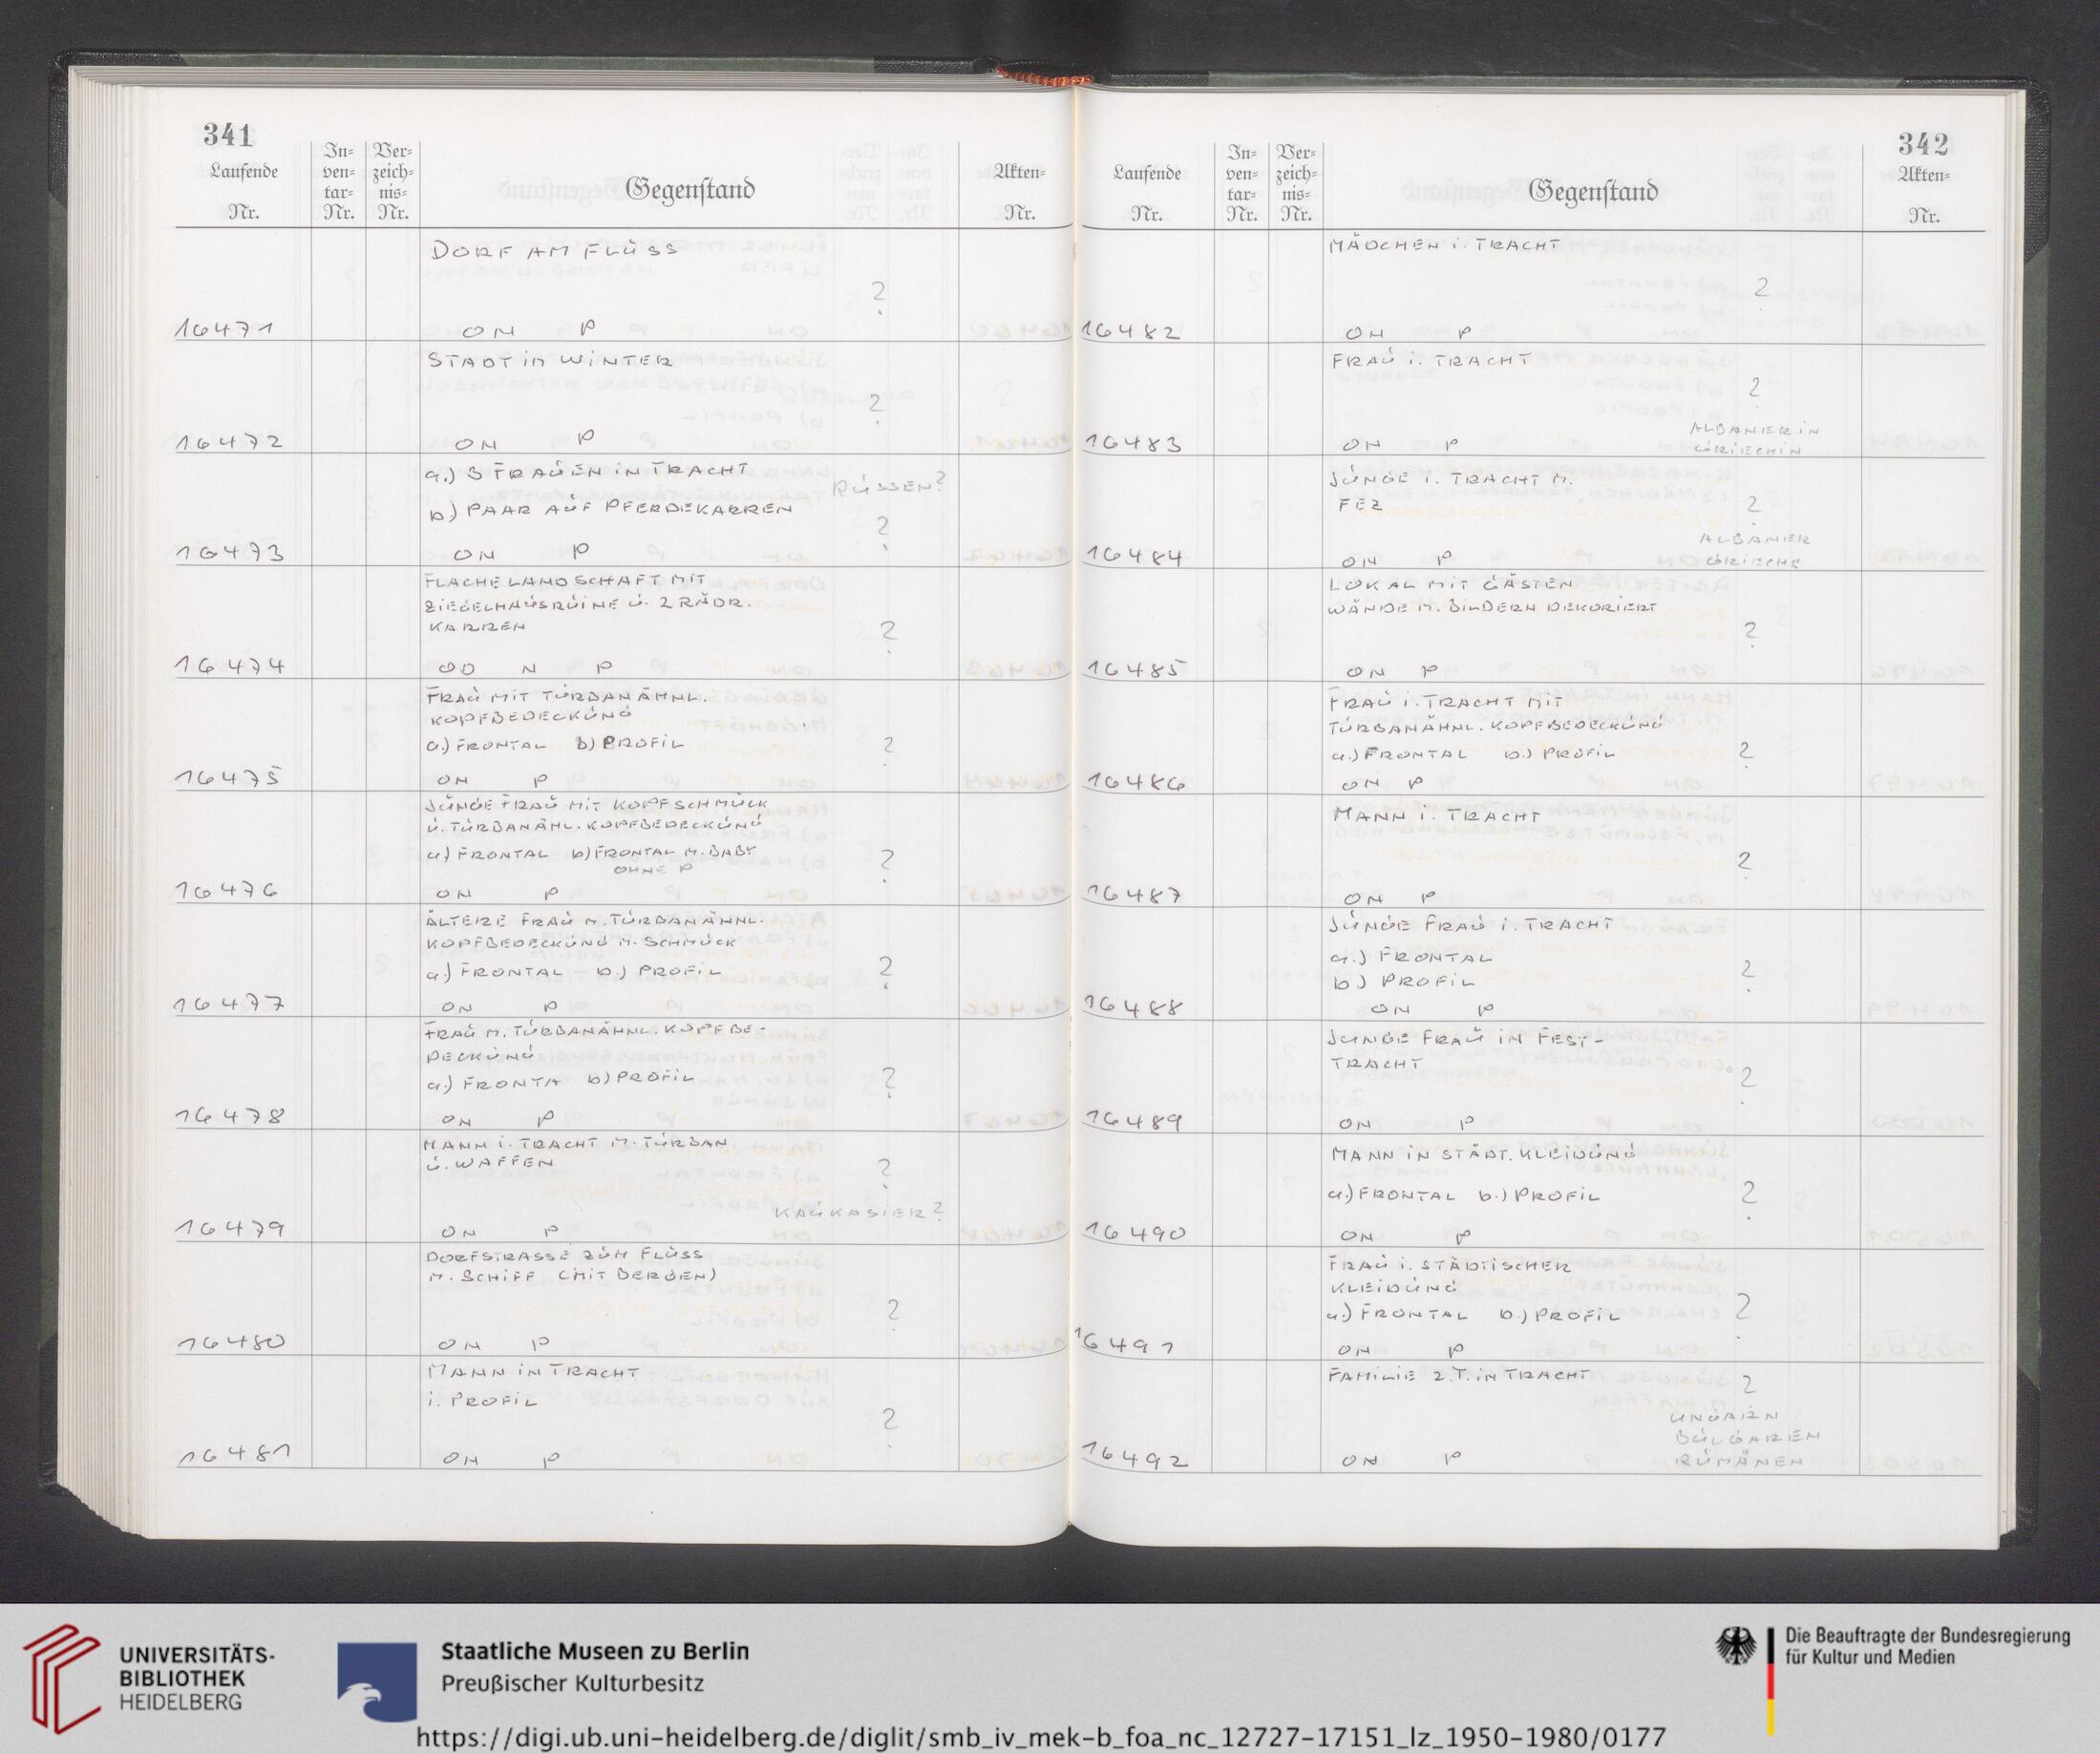 341
Laufende
Nr.
In-
ven-
tar-
Nr.
Ver-
zeich-
nis-
Nr.
Gegenstand
Akten-
Nr.
DORF AM FLUSS
?
16471 ON P
STADT IM WINTER
?
16472 ON P
a.) 3 FRAUEN IN TRACHT
RUSSEN?
b.) PAAR AUF PFERDEKARREN
?
16473 ON P
FLACHE LANDSCHAFT MIT
ZIEGELHAUSRUINE U. 2 RÄDR.
KARREN ?
16474 OD N P
FRAU MIT TURBANÄHNL.
KOPFBEDECKUNG
a.) FRONTAL b) PROFIL ?
16475 ON P
JUNGE FRAU MIT KOPFSCHMUCK
U. TURBANÄHL. KOPFBEDECKUNG
a) FRONTAL b) FRONTAL M. BABY ?
OHNE P
16476 ON P
ÄLTERE FRAU M. TURBANÄHNL.
KOPFBEDECKUNG M. SCHMUCK
a.) FRONTAL b.) PROFIL ?
16477 ON P
FRAU M. TURBANÄHNL. KOPFBE-
DECKUNG
a.) FRONTA b) PROFIL ?
16478 ON P
MANN I. TRACHT M. TURBAN
U. WAFFEN ?
KAUKASIER?
16479 ON P
DORFSTRASSE ZUM FLUSS
M. SCHIFF (MIT BERGEN)
?
16480 ON P
MANN IN TRACHT
I. PROFIL
?
16481 ON P
342
Laufende
Nr.
In-
ven-
tar-
Nr.
Ver-
zeich-
nis-
Nr.
Gegenstand
Akten-
Nr.
MÄDCHEN I. TRACHT
?
16482 ON P
FRAU I. TRACHT
?
ALBANIERIN
16483 ON P GRIECHIN
JUNGE I. TRACHT M.
FEZ ?
ALBANIER
16484 ON P GRIECHE
LOKAL MIT GÄSTEN
WÄNDE M. BILDERN DEKORIERT
?
16485 ON P
FRAU I. TRACHT MIT
TURBANÄHNL. KOPFBEDECKUNG
a.) FRONTAL b.) PROFIL ?
16486 ON P
MANN I. TRACHT
?
16487 ON P
JUNGE FRAU I. TRACHT
a.) FRONTAL
b) PROFIL ?
16488 ON P
JUNGE FRAU IN FEST-
TRACHT
?
16489 ON P
MANN IN STÄDT. KLEIDUNG
a.) FRONTAL b.) PROFIL ?
16490 ON P
FRAU I. STÄDTISCHER
KLEIDUNG
a.) FRONTAL b.) PROFIL ?
16491 ON P
FAMILIE Z.T. IN TRACHT
?
UNGARN
BULGAREN
16492 ON P RUMÄNEN
UNIVERSITÄTS-
BIBLIOTHEK
HEIDELBERG
Staatliche Museen zu Berlin
Preußischer Kulturbesitz
Die Beauftragte der Bundesregierung
für Kultur und Medien
https://digi.ub.uni-heidelberg.de/diglit/smb_iv_mek-b_foa_nc_12727-17151_lz_1950-1980/0177